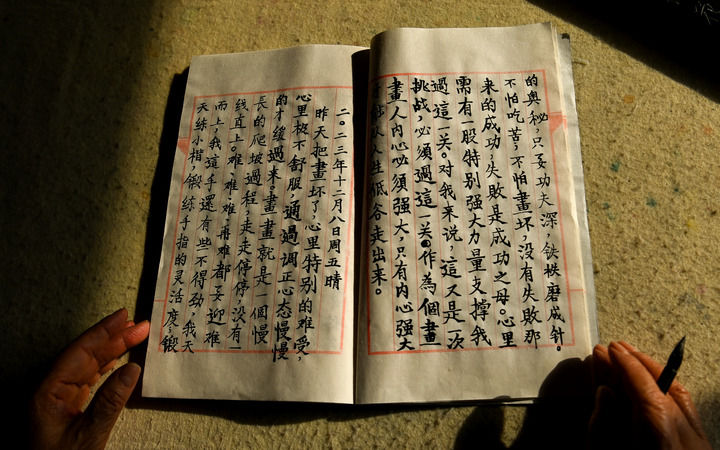 的奥秘,只要功夫深,铁秩磨成针。
不怕吃苦,不怕畫坏,没有失败那
来的成功,失败是成功之母。心里
需有一股特别强大力量支撑我
過這一关。对我来说,這又是一次
挑战,必须過這一关。作為個畫
畫人内心必须强大,只有内心强大
才能从人生低谷走出来。
二〇二三年十二月八日周五晴
昨天把畫坏了,心里特别的难受,
心里极不舒服,通過调正心态慢慢
的才缓過来。畫畫就是一個慢
长的爬坡過程,走走停停,没有一
线直上。难、难、难、再难都要迎难
而上,我這手還有些不得劲,我天
天练小楷,鍛练手指的灵活度,鍛